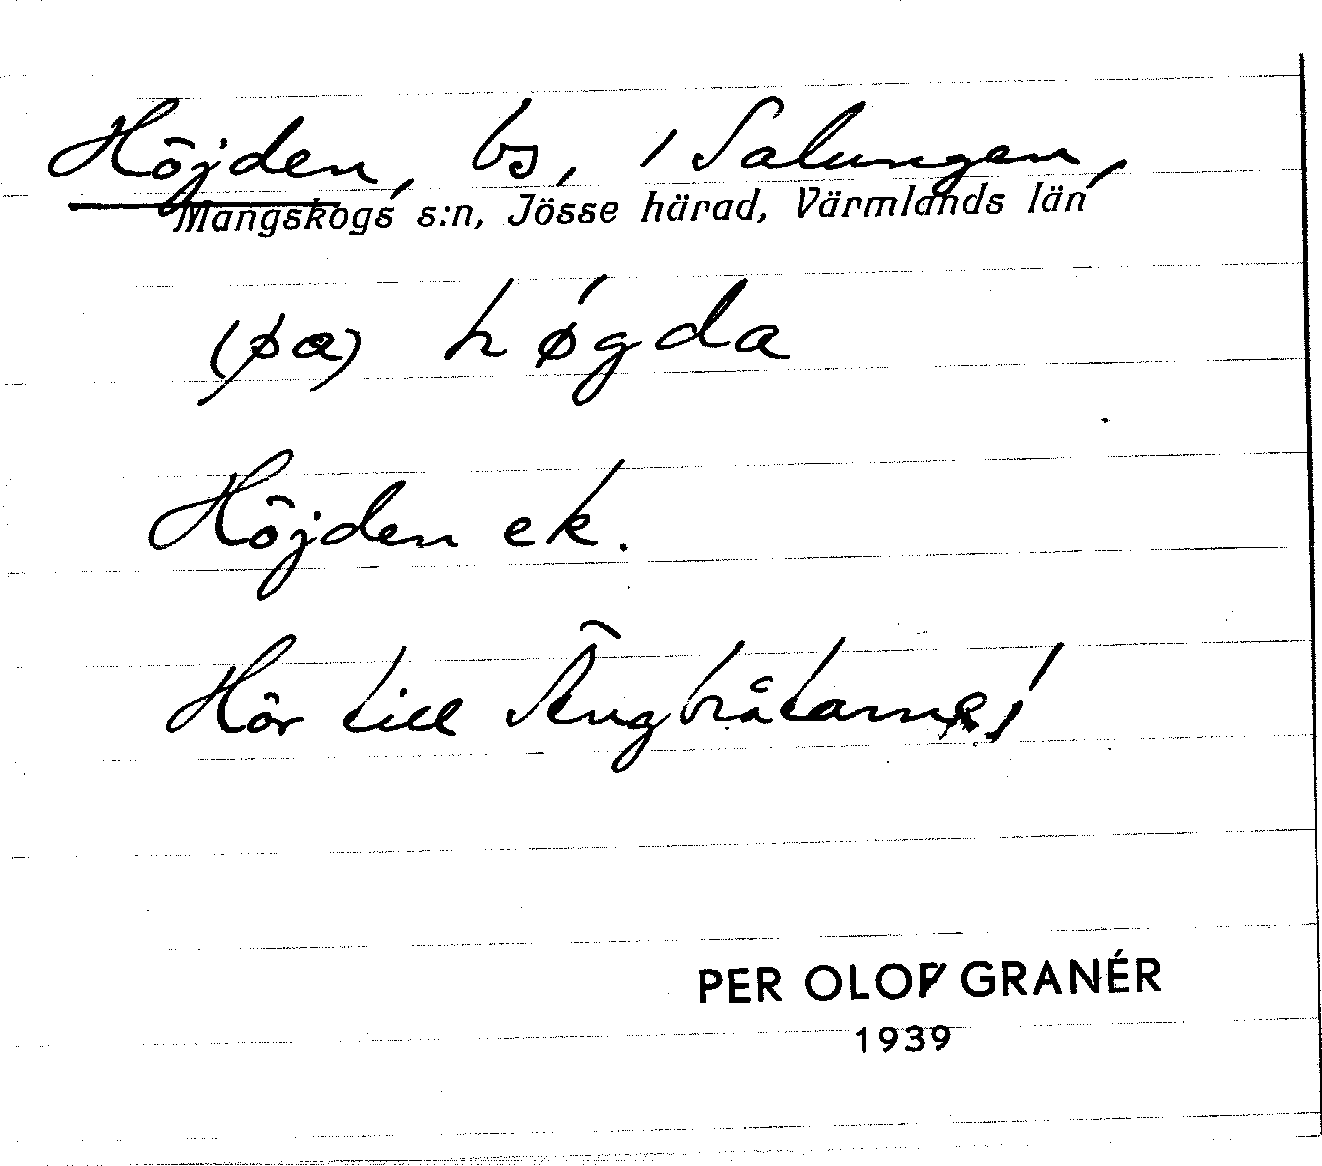 Höjden, bs, i Salungen,
Mangskogs s:n, Jösse härad, Värmlands län
(pɑ) hǿgda
Höjden ek.
Hör till
PER OLOF GRANÉR
1939